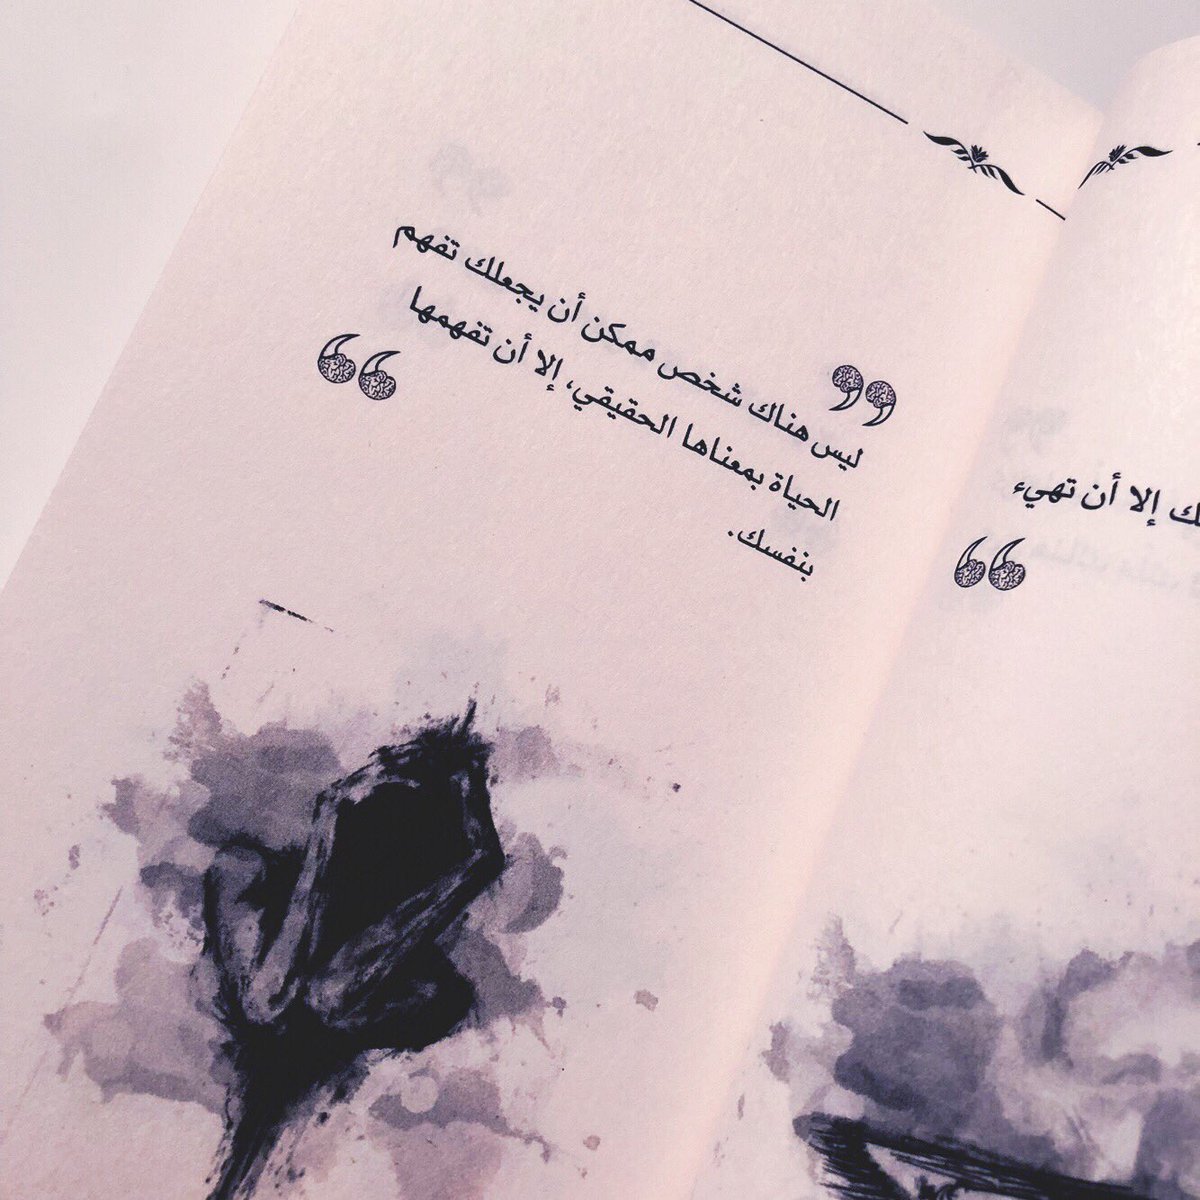 ليس هناك شخص ممكن أن يجعلك تفهم
الحياة بمعناها الحقيقي، إلا أن تفهمها
بنفسك.
إلا أن تهيء